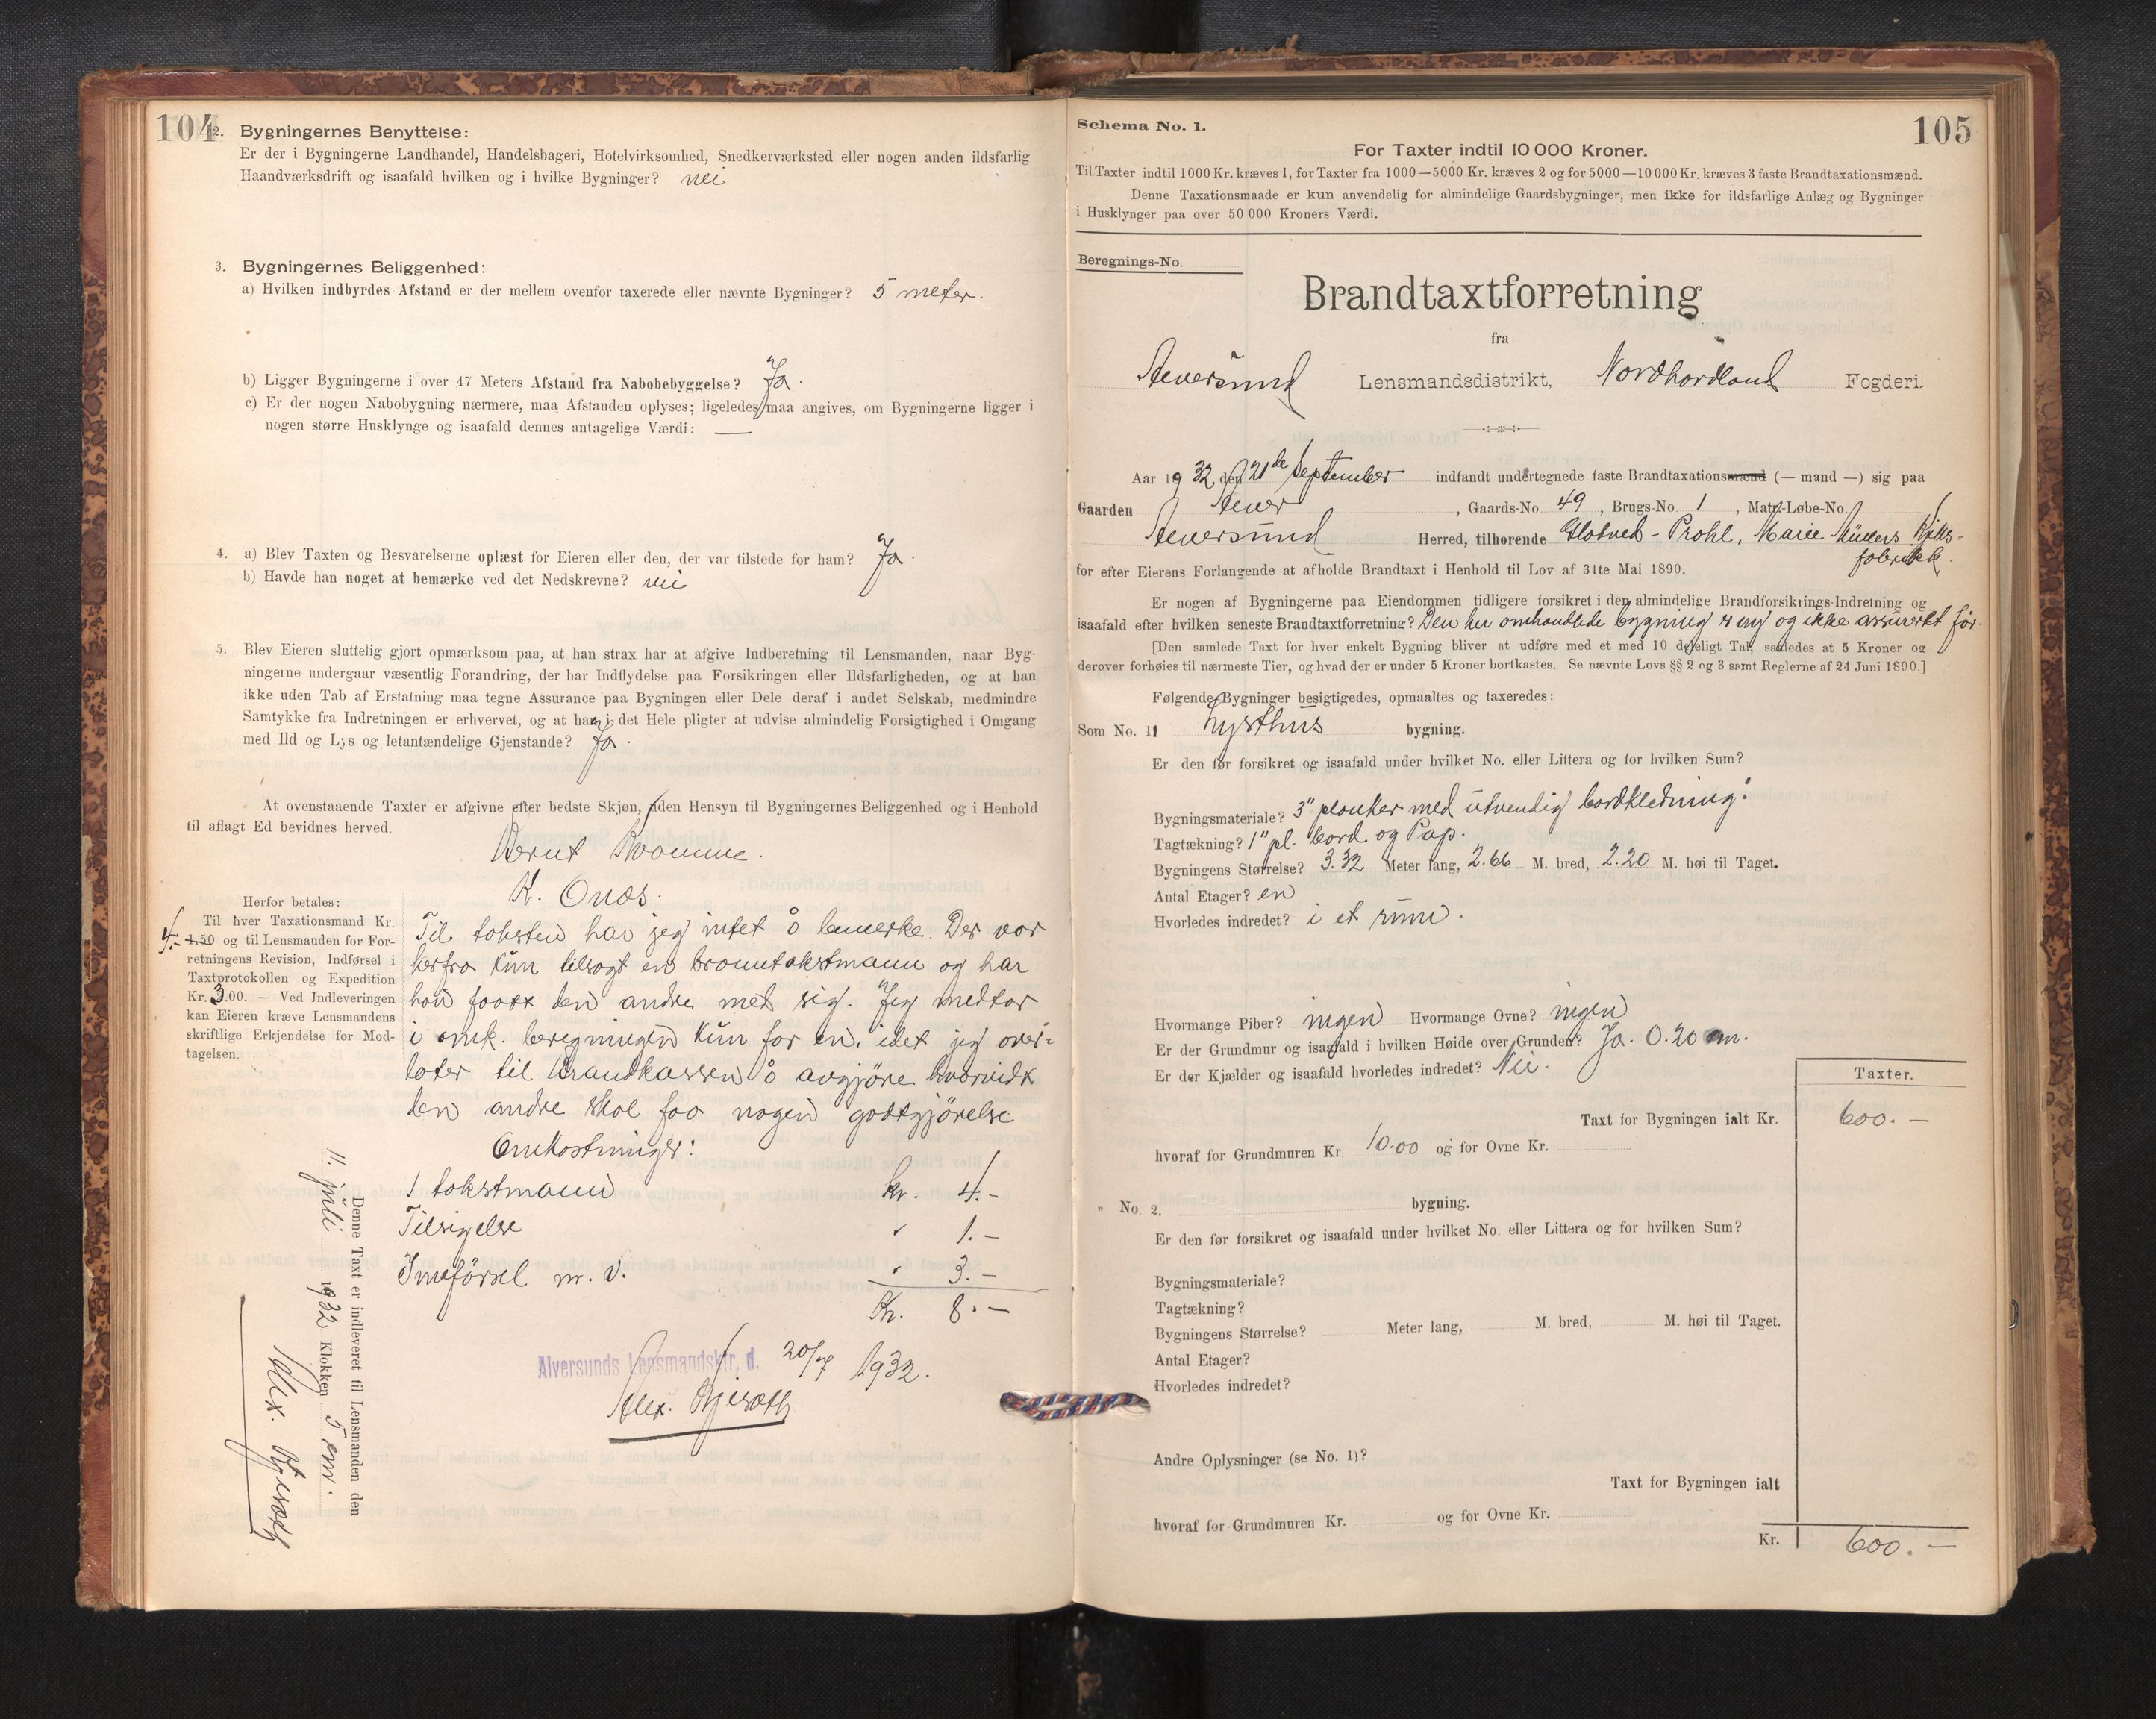 104
2. Bygningernes Benyttelse:
Er der i Bygningerne Landhandel, Handelsbageri, Hotelvirksomhed, Snedkerværksted eller nogen anden ildsfarlig
Haandværksdrift og isaafald hvilken og i hvilke Bygninger? nei
3. Bygningernes Beliggenhed:
a) Hvilken indbyrdes Afstand er der mellem ovenfor taxerede eller nævnte Bygninger? 5 meter.
b) Ligger Bygningerne i over 47 Meters Afstand fra Nabobebyggelse? Ja.
c) Er der nogen Nabobygning nærmere, maa Afstanden oplyses; ligeledes maa angives, om Bygningerne ligger i
nogen større Husklynge og isaafald dennes antagelige Værdi: —
4. a) Blev Taxten og Besvarelserne oplæst for Eieren eller den, der var tilstede for ham? Ja.
b) Havde han noget at bemærke ved det Nedskrevne? nei
5. Blev Eieren sluttelig gjort opmærksom paa, at han strax har at afgive Indberetning til Lensmanden, naar Byg-
ningerne undergaar væsentlig Forandring, der har Indflydelse paa Forsikringen eller Ildsfarligheden, og at han
ikke uden Tab af Erstatning maa tegne Assurance paa Bygningen eller Dele deraf i andet Selskab, medmindre
Samtykke fra Indretningen er erhvervet, og at han i det Hele pligter at udvise almindelig Forsigtighed i Omgang
med Ild og Lys og letantændelige Gjenstande? Ja.
At ovenstaaende Taxter er afgivne efter bedste Skjøn, uden Hensyn til Bygningernes Beliggenhed og i Henhold
til aflagt Ed bevidnes herved.
Bernt Kvamme.
K. Onæs.
Herfor betales:
Til hver Taxationsmand Kr.
4.- 1.50 og til Lensmanden for For-
retningens Revision, Indførsel i
Taxtprotokollen og Expedition
Kr. 3.00. — Ved Indleveringen
kan Eieren kræve Lensmandens
skriftlige Erkjendelse for Mod-
tagelsen.
Til taksten har jeg intet å bemerke. Der var
herfra kun tilsagt en branntakstmann og har
han faatt den andre med sig. Jeg medtar
i omk. beregningen kun for en, idet jeg over-
later til Brandkassen å avgjøre hvorvidt
den andre skal faa nogen godtgjörelse
Omkostninger:
1 takstmann kr. 4.-
Tilsigelse " 1.-
Innförsel m. v. " 3.-
Kr. 8.-
Alversunds Lensmandsktr. d. 20/7 1932.
Alex. Bjerseth
Denne Taxt er indleveret til Lensmanden den
11. juli 1932 Klokken 5 em.
Alex. Bjerseth
105
Schema No. 1.
For Taxter indtil 10 000 Kroner.
Til Taxter indtil 1000 Kr. kræves 1, for Taxter fra 1000—5000 Kr. kræves 2 og for 5000—10 000 Kr. kræves 3 faste Brandtaxationsmænd.
Denne Taxationsmaade er kun anvendelig for almindelige Gaardsbygninger, men ikke for ildsfarlige Anlæg og Bygninger
i Husklynger paa over 50 000 Kroners Værdi.
Beregnings-No.
Brandtaxtforretning
fra
Alversund Lensmandsdistrikt, Nordhordland Fogderi.
Aar 1932, den 21de September indfandt undertegnede faste Brandtaxationsmænd (— mand —) sig paa
Gaarden Alver, Gaards-No 49, Brugs-No. 1, Matr.-Løbe-No.
Alversund Herred, tilhørende Glatved-Prahl, Marie Müllers Kjeks-
fabrikk
for efter Eierens Forlangende at afholde Brandtaxt i Henhold til Lov af 31te Mai 1890.
Er nogen af Bygningerne paa Eiendommen tidligere forsikret i den almindelige Brandforsikrings-Indretning og
isaafald efter hvilken seneste Brandtaxtforretning? Den her omhandlede bygning er ny og ikke assurert før.
[Den samlede Taxt for hver enkelt Bygning bliver at udføre med et med 10 deleligt Tal, saaledes at 5 Kroner og
derover forhøies til nærmeste Tier, og hvad der er under 5 Kroner bortkastes. Se nævnte Lovs §§ 2 og 3 samt Reglerne af 24 Juni 1890.]
Følgende Bygninger besigtigedes, opmaaltes og taxeredes:
Som No. 1. Lysthus bygning.
Er den før forsikret og isaafald under hvilket No. eller Littera og for hvilken Sum?
Bygningsmateriale? 3" planker med utvendig bordkledning.
Tagtækning? 1" pl. bord og Pap.
Bygningens Størrelse? 3.32 Meter lang, 2.66 M. bred, 2.20 M. høi til Taget.
Antal Etager? en
Hvorledes indredet? i et rum.
Hvormange Piber? ingen Hvormange Ovne? ingen
Er der Grundmur og isaafald i hvilken Høide over Grunden? Ja. 0.20 m.
Er der Kjælder og isaafald hvorledes indredet? Nei.
Taxter.
Taxt for Bygningen ialt Kr. 600.—
hvoraf for Grundmuren Kr. 10.00 og for Ovne Kr.
" No. 2. bygning.
Er den før forsikret og isaafald under hvilket No. eller Littera og for hvilken Sum?
Bygningsmateriale?
Tagtækning?
Bygningens Størrelse? Meter lang, M. bred, M. høi til Taget.
Antal Etager?
Hvorledes indredet?
Andre Oplysninger (se No. 1)?
Taxt for Bygningen ialt
hvoraf for Grundmuren Kr. og for Ovne Kr.
Kr. 600.—